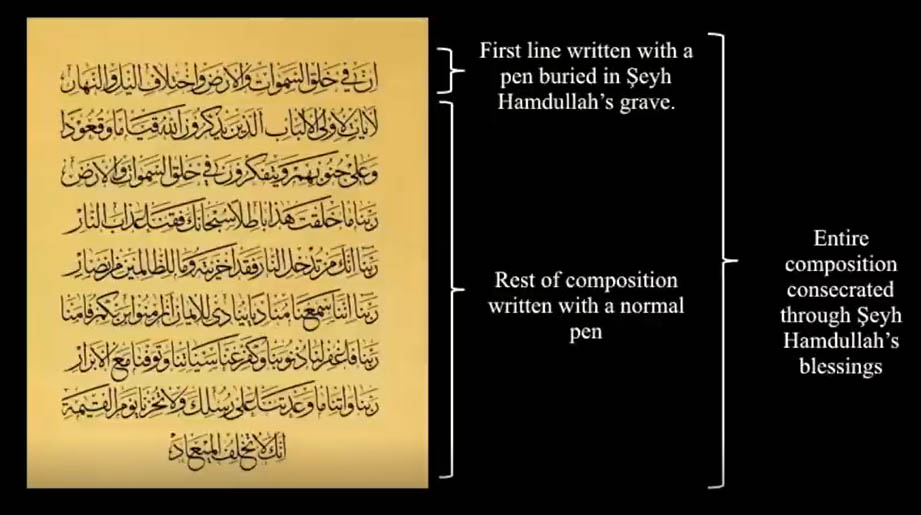 ان في خلق السموات والارض واختلاف الليل والنهار
لايات لاولى الالباب الذين يذكرون الله قياما وقعودا
وعلى جنوبهم ويتفكرون في خلق السموات والارض
ربنا ما خلقت هذا باطلا سبحانك فقنا عذاب النار
ربنا انك من تدخل النار فقد اخزيته وما للظالمين من انصار
ربنا اننا سمعنا مناديا ينادى للايمان ان امنوا بربكم فامنا
ربنا فاغفر لنا ذنوبنا وكفر عنا سيئاتنا وتوفنا مع الابرار
ربنا واتنا ما وعدتنا على رسلك ولا تخزنا يوم القيمة
انك لا تخلف الميعاد
First line written with a
pen buried in Şeyh
Hamdullah’s grave.
Rest of composition
written with a normal
pen
Entire
composition
consecrated
through Şeyh
Hamdullah’s
blessings